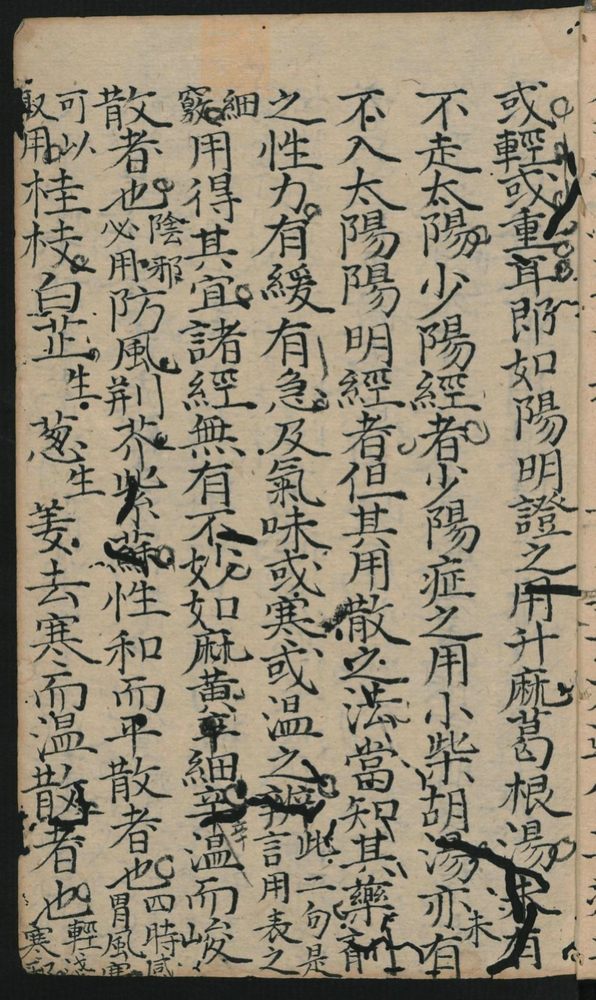 或輕或重耳即如陽明證之用升麻葛根湯未有
不走太陽少陽經者少陽症之用小柴胡湯亦有
不入太陽陽明經者但其用散之法當知其藥
之性力有緩有急及氣味或寒或温之辨此二句是言用表之
細竅用得其宜諸經無有不妙如麻黄辛細辛温而峻
散者也陰邪必用防風荆芥紫蘇性和而平散者也四時感冒風寒
可以取用桂枝白芷生葱生姜去寒而温散者也輕淺寒